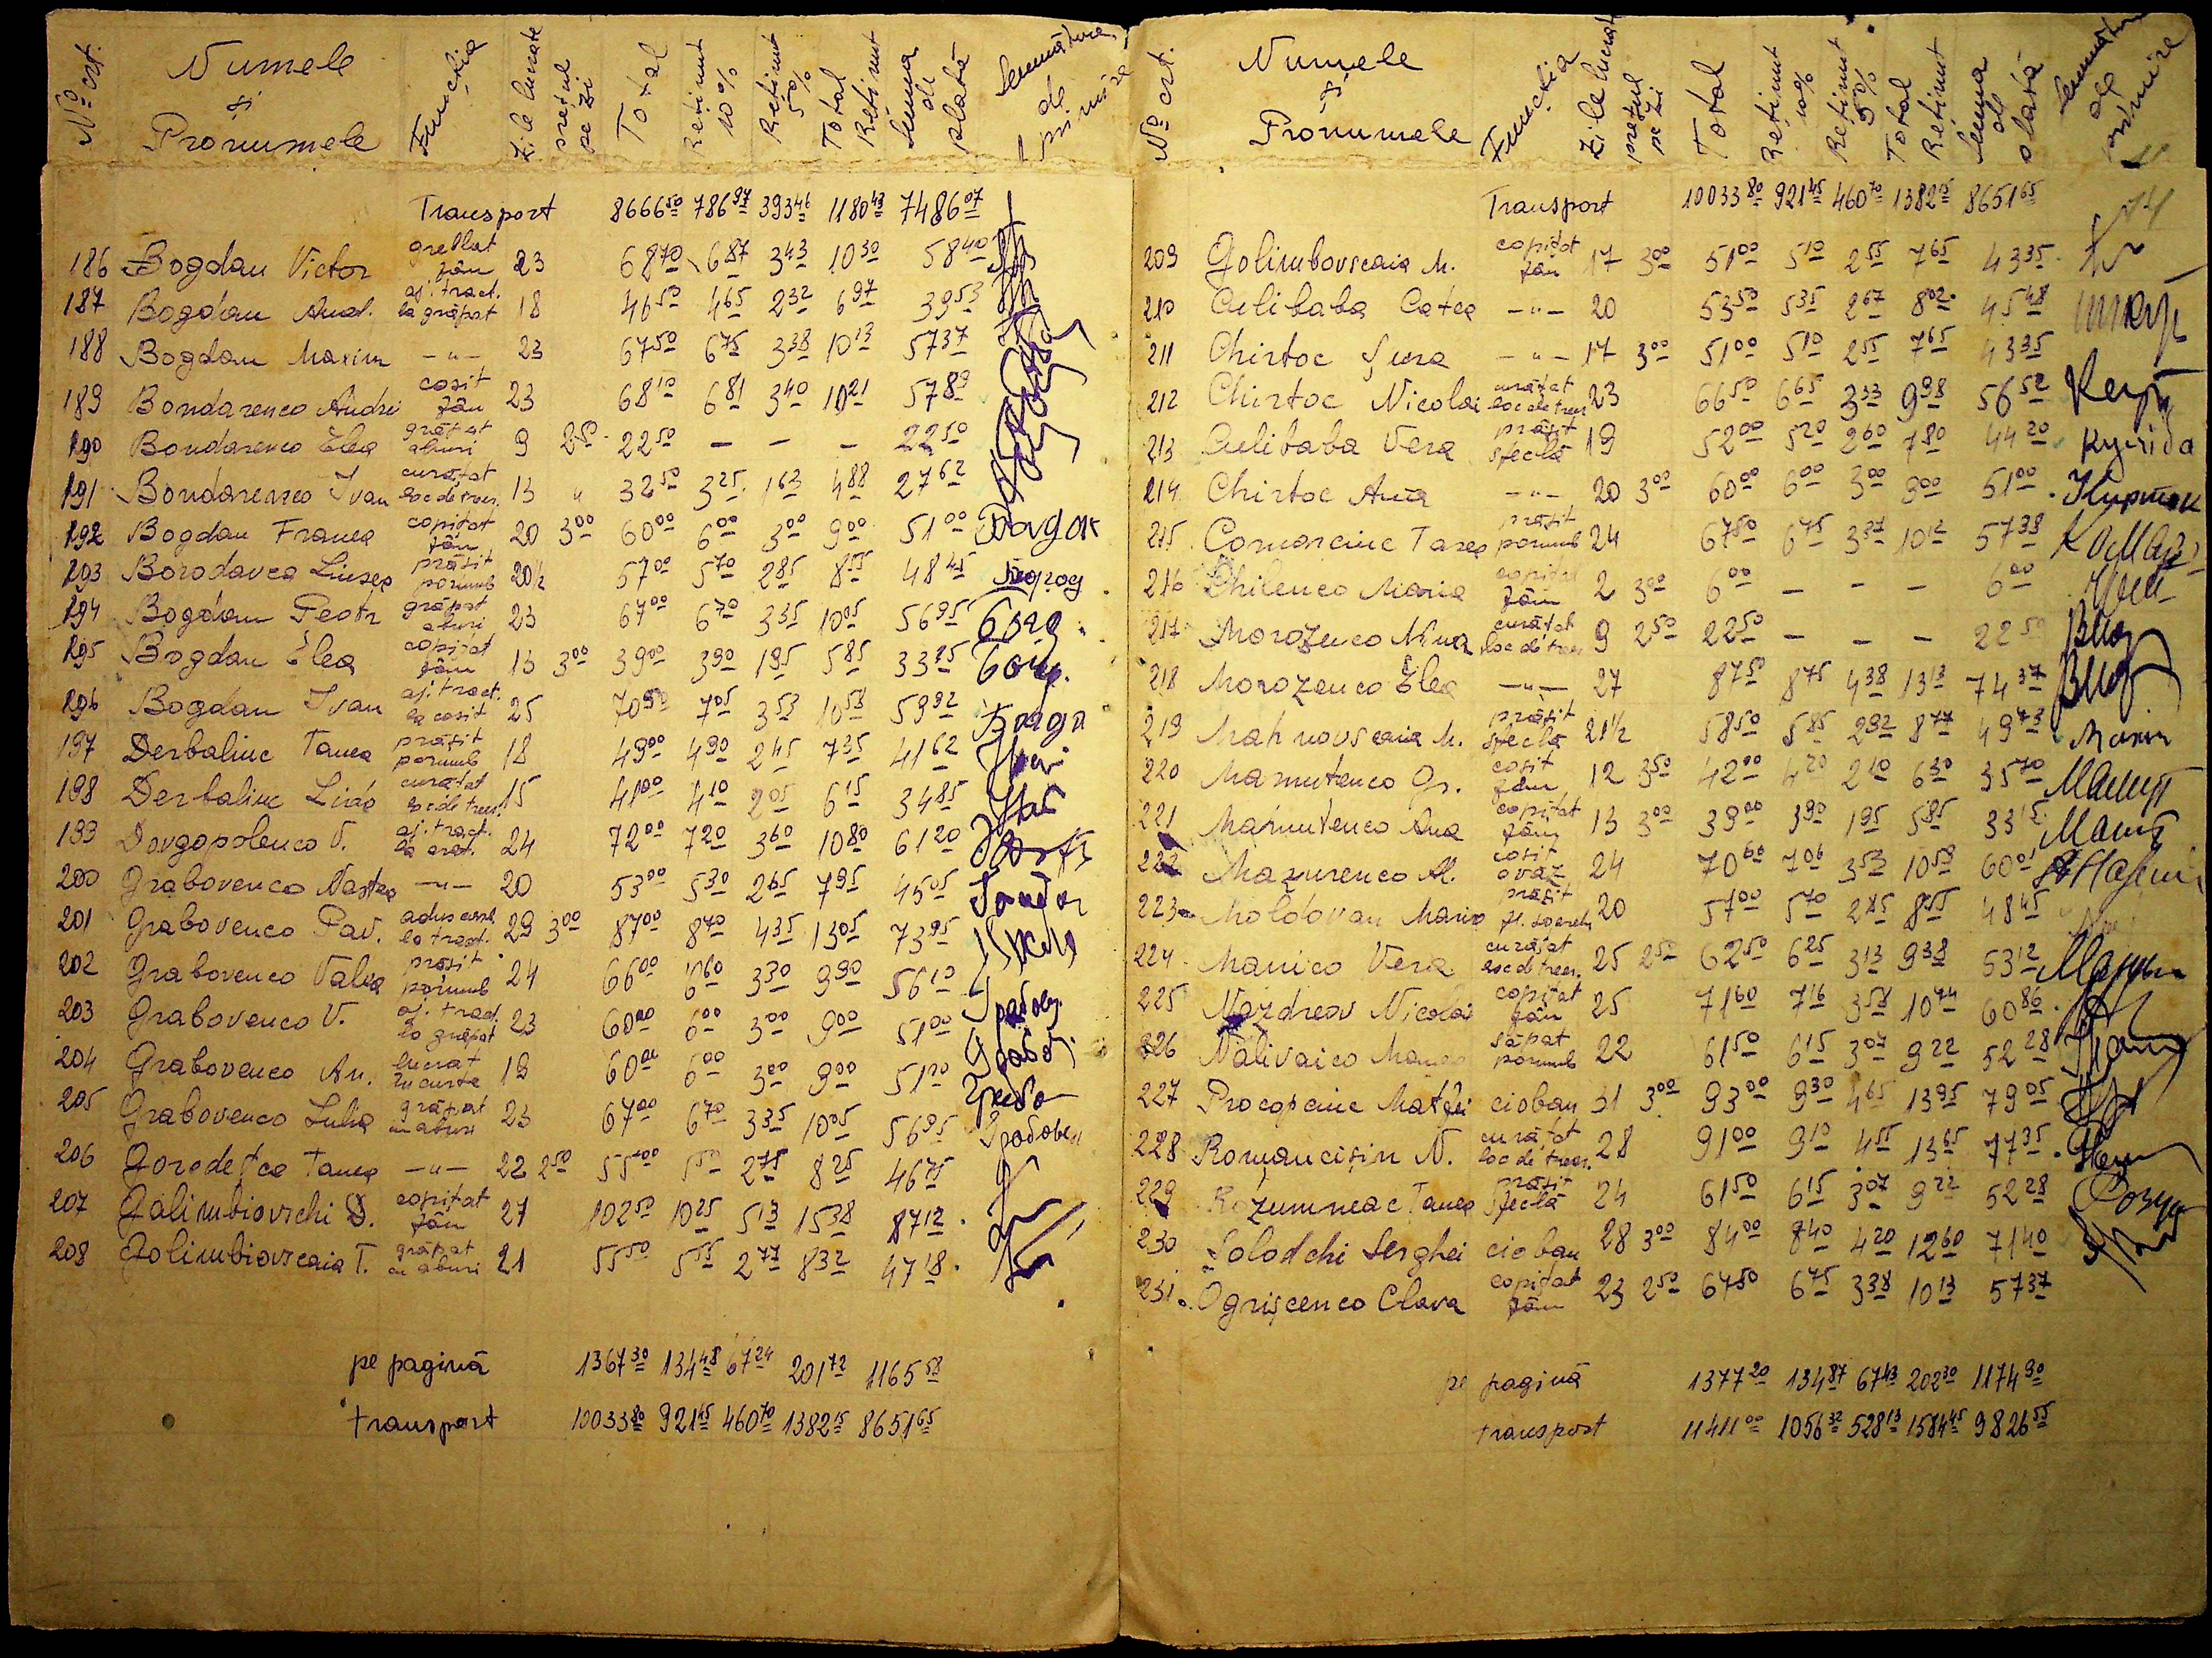 Nº crt. Numele și Pronumele Funcția Zile lucrate prețul pe zi Total Reținut 10% Reținut 5% Total Reținut Suma de plată Semnătura de primire
Transport 8666 50 786 97 393 46 1180 43 7486 07
186 Bogdan Victor greblat fân 23 68 70 6 87 3 43 10 30 58 40
187 Bogdan And. aj. tract. la grăpat 18 46 50 4 65 2 32 6 97 39 53
188 Bogdan Maxim —"— 23 67 50 6 75 3 38 10 13 57 37
189 Bondarenco Andrei cosit fân 23 68 10 6 81 3 40 10 21 57 89
190 Bondarenco Elea grăpat aburi 9 2 50 22 50 — — — 22 50
191 Bondarenco Ivan curățat loc de treer. 13 " 32 50 3 25 1 63 4 88 27 62
192 Bogdan Franea copițat fân 20 3 00 60 00 6 00 3 00 9 00 51 00
193 Borodavca Liusea prășit porumb 20 1/2 57 00 5 70 2 85 8 55 48 45
194 Bogdan Peotr grăpat aburi 23 67 00 6 70 3 35 10 05 56 95
195 Bogdan Elea copițat fân 13 3 00 39 00 3 90 1 95 5 85 33 15
196 Bogdan Ivan aj. tract. la cosit 25 70 50 7 05 3 53 10 58 59 92
197 Derbaliuc Tanea prășit porumb 18 49 00 4 90 2 45 7 35 41 62
198 Derbaliuc Lida curățat loc de treer. 15 41 00 4 10 2 05 6 15 34 85
199 Dovgopolenco V. aj. tract. la arat. 24 72 00 7 20 3 60 10 80 61 20
200 Grabovenco Nastea —"— 20 53 00 5 30 2 65 7 95 45 05
201 Grabovenco Pav. la tract. 29 3 00 87 00 8 70 4 35 13 05 73 95
202 Grabovenco Valea prășit porumb 24 66 00 6 60 3 30 9 90 56 10
203 Grabovenco V. aj. tract. la grăpat 23 60 00 6 00 3 00 9 00 51 00
204 Grabovenco An. lucrat în curte 19 60 00 6 00 3 00 9 00 51 00
205 Grabovenco Iulia grăpat cu aburi 23 67 00 6 70 3 35 10 05 56 95
206 Gorodețca Tanea —"— 22 2 50 55 00 5 50 2 75 8 25 46 75
207 Golimbiovschi D. copițat fân 27 102 50 10 25 5 13 15 38 87 12
208 Golimbiovscaia T. grăpat cu aburi 21 55 50 5 55 2 77 8 32 47 18
pe pagină 1367 30 134 48 67 24 201 72 1165 58
transport 10033 80 921 45 460 70 1382 15 8651 65
Nº crt. Numele și Pronumele Funcția Zile lucrate prețul pe zi Total Reținut 10% Reținut 5% Total Reținut Suma de plată Semnătura de primire
Transport 10033 80 921 45 460 70 1382 15 8651 65
209 Golimbovscaia M. copițat fân 17 3 00 51 00 5 10 2 55 7 65 43 35
210 Culibaba Catea —"— 20 53 50 5 35 2 67 8 02 45 48
211 Chirtoc Șura —"— 17 3 00 51 00 5 10 2 55 7 65 43 35
212 Chirtoc Nicolai curățat loc de treer 23 66 50 6 65 3 33 9 98 56 52
213 Culibaba Vera prășit sfeclă 19 52 00 5 20 2 60 7 80 44 20
214 Chirtoc Ana —"— 20 3 00 60 00 6 00 3 00 9 00 51 00
215 Comarciuc Tanea prășit porumb 24 67 50 6 75 3 37 10 12 57 38
216 Chilenco Maria copițat fân 2 3 00 6 00 — — 6 00
217 Morozenco Nina curățat loc de treer 9 2 50 22 50 — — — 22 50
218 Morozenco Elea —"— 27 87 50 8 75 4 38 13 13 74 37
219 Mahnovscaia M. prășit sfeclă 21 1/2 58 50 5 85 2 92 8 77 49 73
220 Mamutenco Gr. cosit fân 12 3 50 42 00 4 20 2 10 6 30 35 70
221 Mamutenco Ana copițat fân 13 3 00 39 00 3 90 1 95 5 85 33 15
222 Mazurenco Al. cosit ovăz 24 70 60 7 06 3 53 10 59 60 01
223 Moldovan Maria prășit fl. soarelui 20 57 00 5 70 2 85 8 55 48 45
224 Manico Vera curățat loc de treer. 25 2 50 62 50 6 25 3 13 9 38 53 12
225 Nazdreov Nicolai copițat fân 25 71 60 7 16 3 58 10 74 60 86
226 Nalivaico Manea săpat porumb 22 61 50 6 15 3 07 9 22 52 28
227 Procopciuc Matfei cioban 31 3 00 93 00 9 30 4 65 13 95 79 05
228 Romancișin N. curățat loc de treer. 28 91 00 9 10 4 55 13 65 77 35
229 Rozumneac Tanea prășit sfeclă 24 61 50 6 15 3 07 9 22 52 28
230 Solodchi Serghei cioban 28 3 00 84 00 8 40 4 20 12 60 71 40
231 Ogrișcenco Clava copițat fân 23 2 50 67 50 6 75 3 38 10 13 57 37
pe pagină 1377 20 134 87 67 43 202 30 1174 90
transport 11411 00 1056 32 528 13 1584 45 9826 55